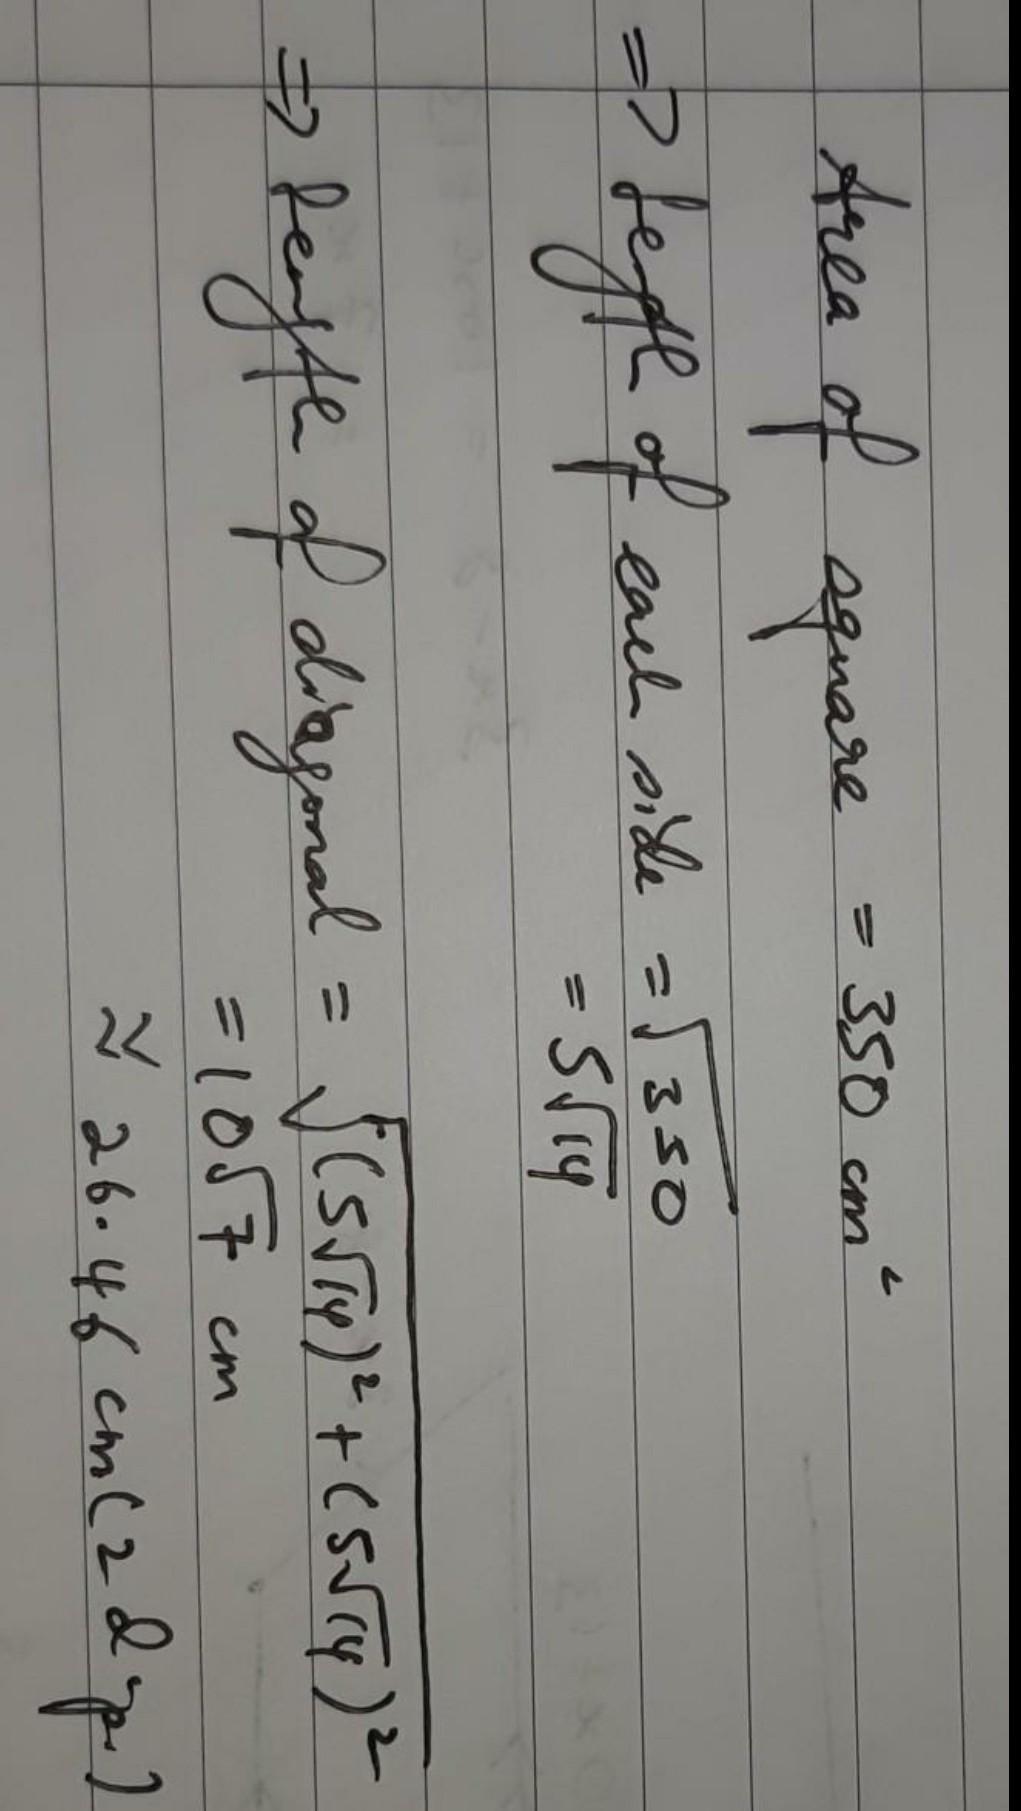 Area of square = 350 cm²
=> Length of each side = √350
= 5√14
=> Length of diagonal = √((5√14)² + (5√14)²)
= 10√7 cm
≈ 26.46 cm (2 d.p.)